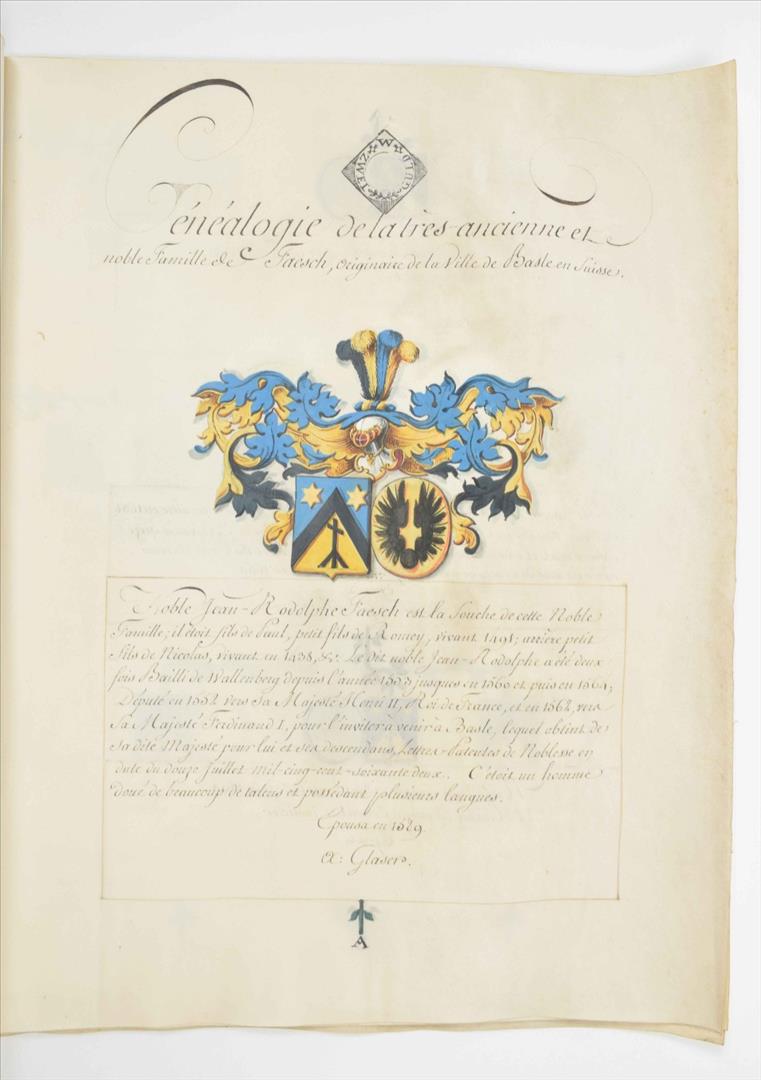 ZWEI EMZ W GULD
Généalogie de la très-ancienne et
noble Famille de Faesch, originaire de la Ville de Basle en Suisse.
Noble Jean-Rodolphe Faesch est la Souche de cette Noble
Famille; il étoit fils de Paul, petit fils de Romey, vivant 1491; arrière petit
fils de Nicolas, vivant en 1438, &c. Le dit noble Jean-Rodolphe a été deux
fois Bailli de Wallenberg depuis l'année 1553 jusques en 1560 et puis en 1564;
Député en 1552 vers Sa Majesté Henri II, Roi de France, et en 1562, vers
Sa Majesté Ferdinand I, pour l'inviter à venir à Basle, lequel obtint de
Sa dite Majesté pour lui et ses descendans, Lettres-Patentes de Noblesse en
date du douze Juillet mil-cinq-cent-soixante deux. C'étoit un homme
doué de beaucoup de talens et possédant plusieurs langues.
Epousa en 1529
Glaser.
A